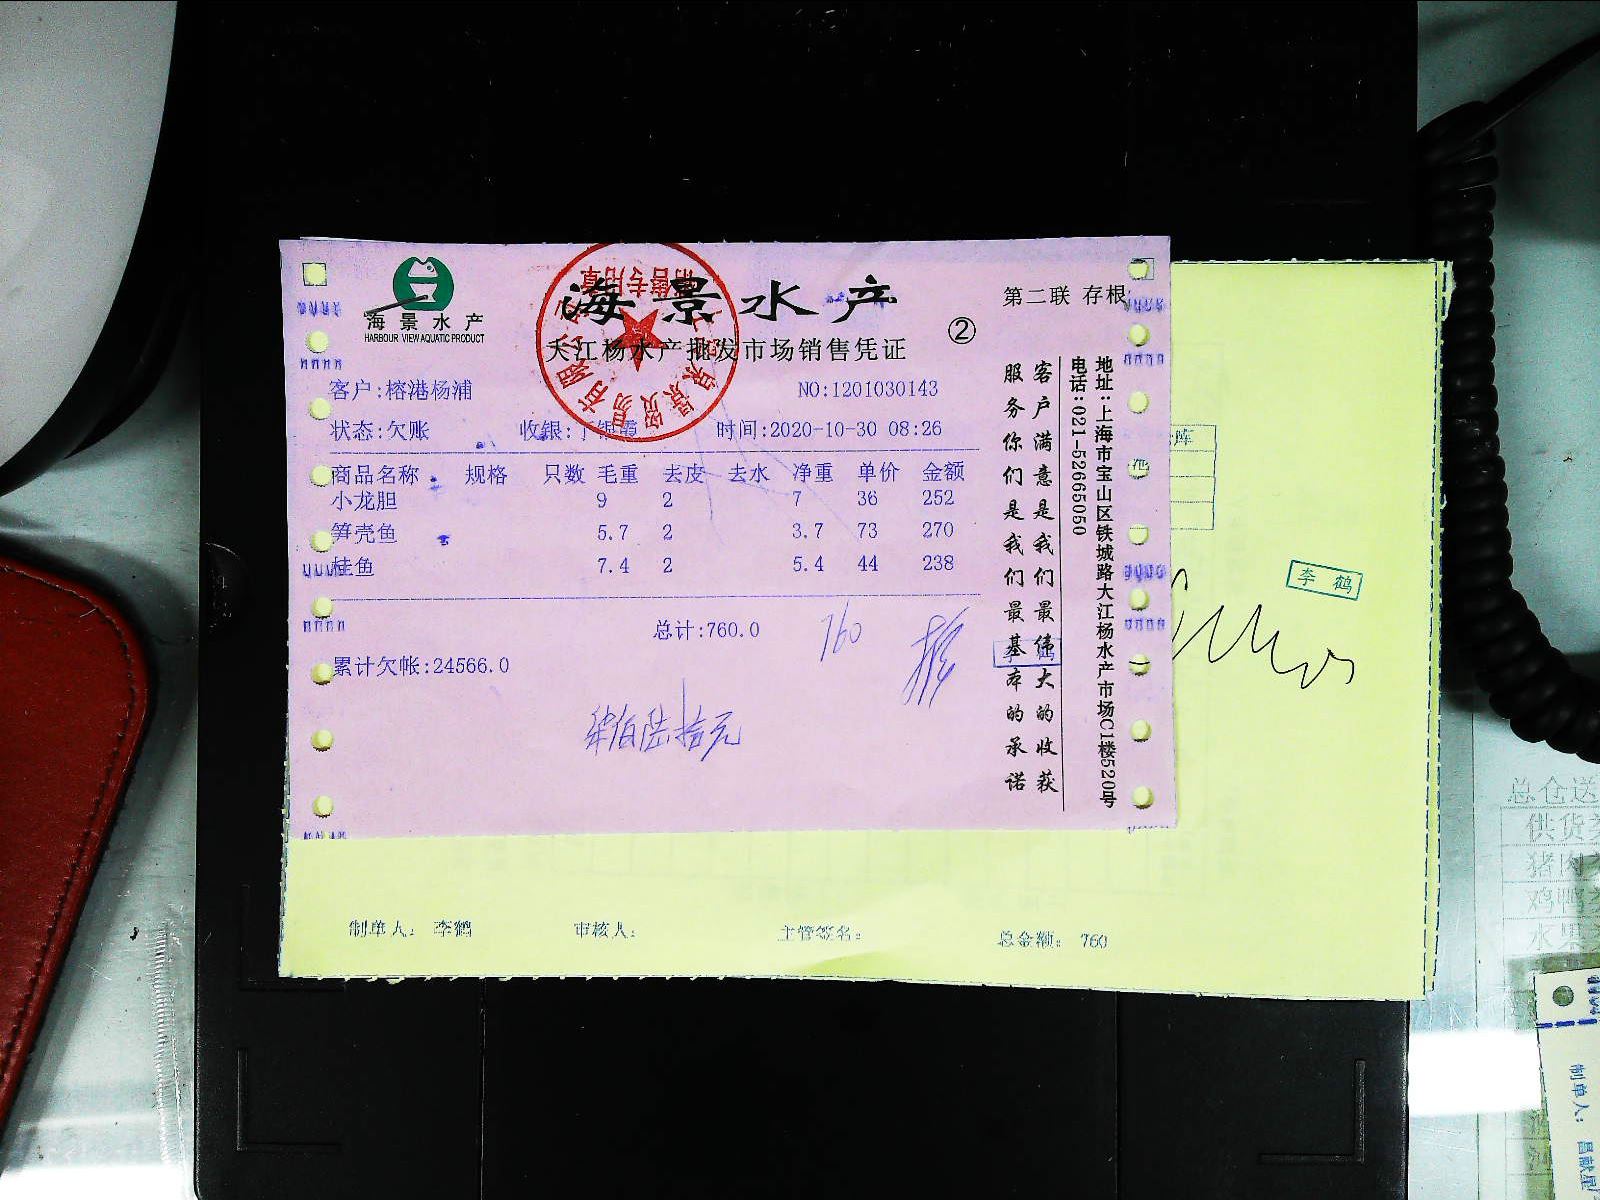 海景水产
HARBOUR VIEW AQUATIC PRODUCT
海景水产
大江杨水产批发市场销售凭证
②
第二联 存根
客户:榕港杨浦
NO:1201030143
状态:欠账
收银:丁银霞
时间:2020-10-30 08:26
商品名称 规格 只数 毛重 去皮 去水 净重 单价 金额
小龙胆 9 2 7 36 252
笋壳鱼 5.7 2 3.7 73 270
桂鱼 7.4 2 5.4 44 238
总计:760.0
760
累计欠帐:24566.0
柒佰陆拾元
客户满意是我们最伟大的收获
服务你们是我们最基本的承诺
地址:上海市宝山区铁城路大江杨水产市场C1楼520号
电话:021-52665050
李鹤
制单人: 李鹤
审核人:
主管签名:
总金额: 760
总仓送
供货
猪肉
鸡鸭
水果
制单人: